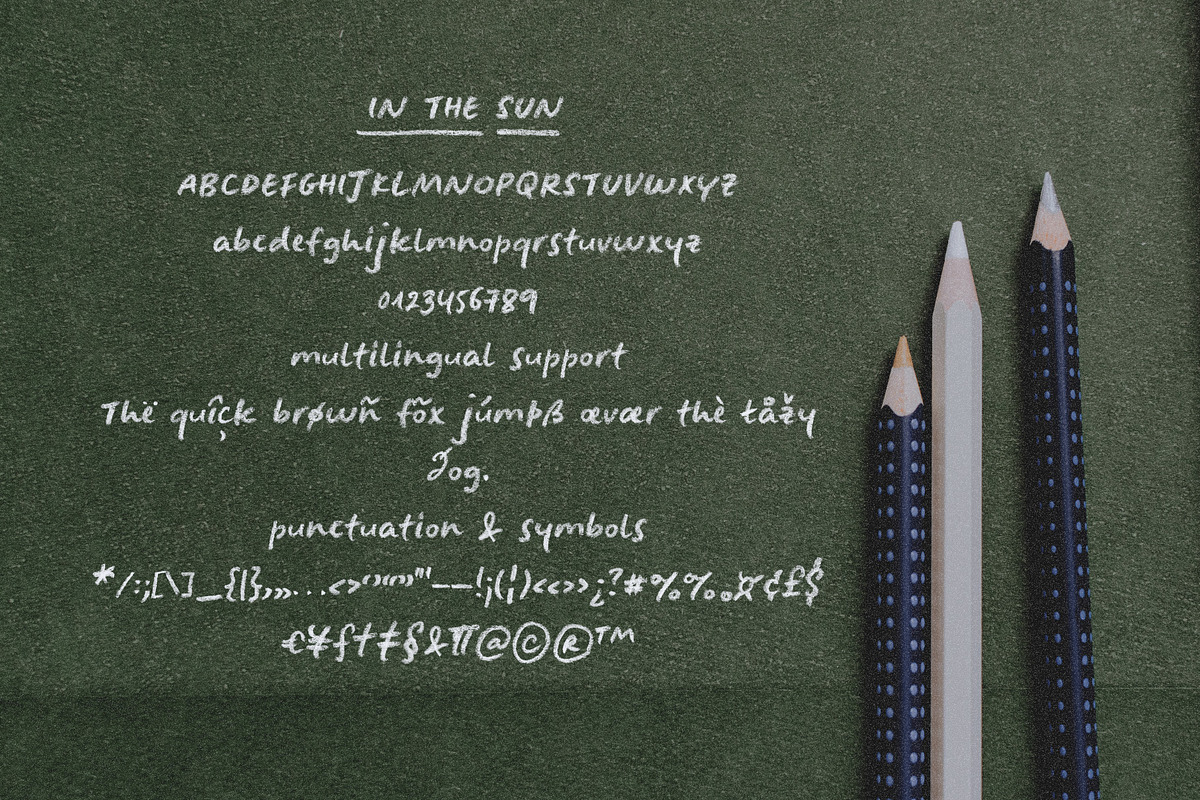 IN THE SUN
ABCDEFGHIJKLMNOPQRSTUVWXYZ
abcdefghijklmnopqrstuvwxyz
0123456789
multilingual support
Thë quîçk brøwñ fõx júmþß œvær thè łåžy
ďog.
punctuation & symbols
*/:;[\]_{|}‚„,·…‹›‘’“”"'–—!¡(¦)«»¿?#%‰¤¢£$
€¥ƒ†‡§&¶@©®™